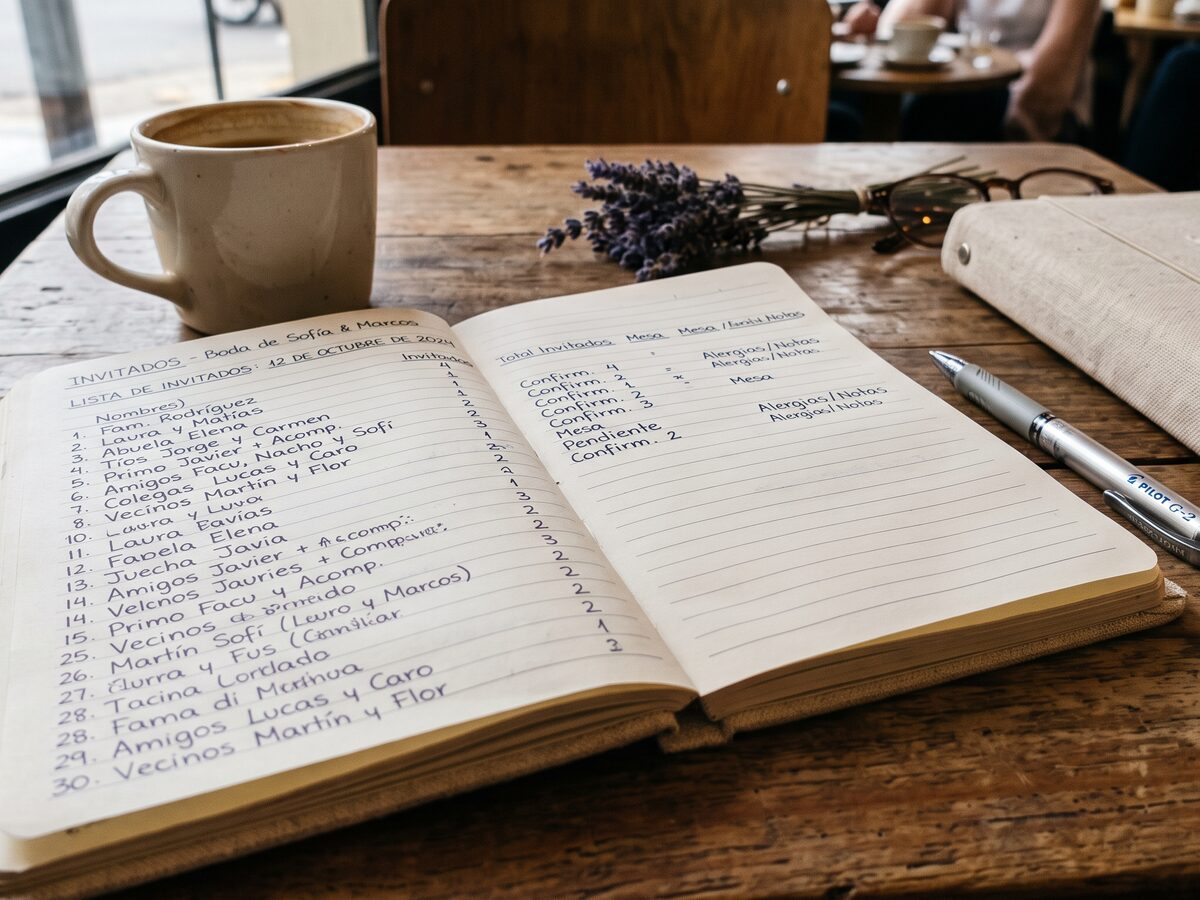 INVITADOS - Boda de Sofía & Marcos
LISTA DE INVITADOS: 12 DE OCTUBRE DE 2024
Nombres) Invitados
1. Fam. Rodríguez 4
2. Laura y Matías 1
3. Abuela Elena 1
4. Tíos Jorge y Carmen 2
5. Primo Javier + Acomp. 2
6. Amigos Facu, Nacho y Sofí 3
7. Colegas Lucas y Caro 1
8. Vecinos Martín y Flor 2
10. Laura y 2
11. Laura Eavías 1
12. Fabela Elena 1
13. Juecha Javia 3
14. Amigos Javier + 2
14. Velcnos Jauries + 2
15. Primo Facu y Acomp. 3
25. Vecinos 2
26. Martín Sofí (Leuro y Marcos) 2
27. y Fus 2
28. Tacina Lordado 1
28. Fama di 3
29. Amigos Lucas y Caro
30. Vecinos Martín y Flor
Total Invitados Mesa Mesa / Notas
Confirm. 4 = Alergias/Notas
Confirm. 2 Alergias/Notas
Confirm. 1
Confirm. 2 Mesa
Confirm. 3
Mesa Alergias/Notas
Pendiente Alergias/Notas
Confirm. 2
PILOT G-2